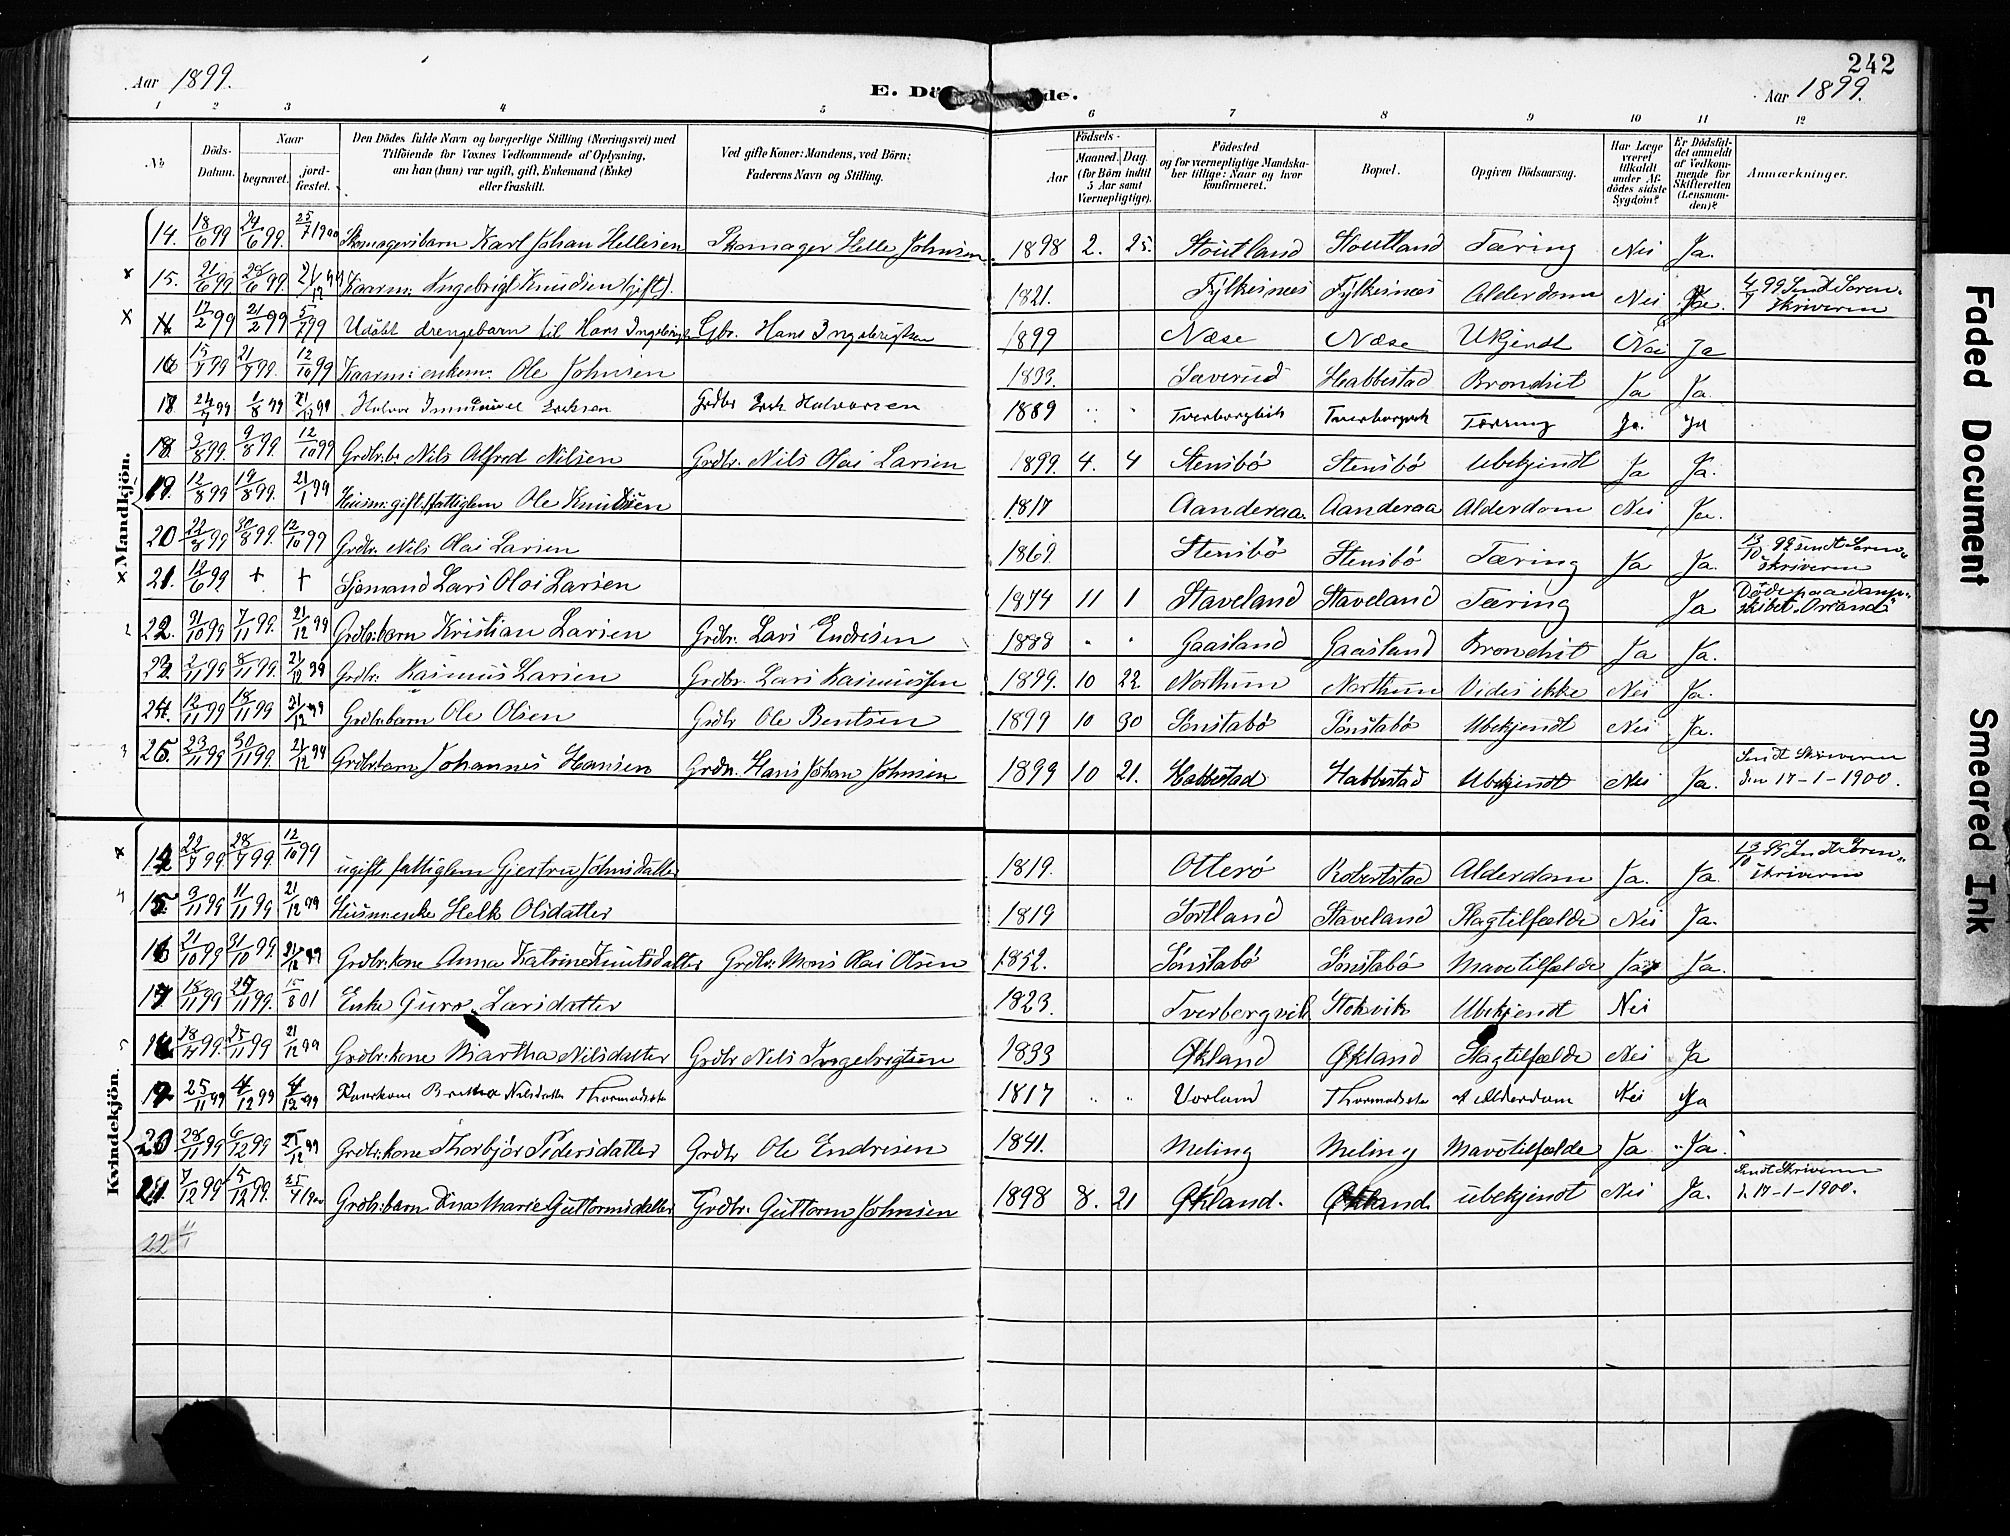 242
Aar 1899.
E. Dö de.
Aar 1899.
1 2 3 4 5 6 7 8 9 10 11 12
No
Döds-Datum.
Naar
begravet.
jord-fæstet.
Den Dödes fulde Navn og borgerlige Stilling (Næringsvei) med
Tilföiende for Voxnes Vedkommende af Oplysning,
om han (hun) var ugift, gift, Enkemand (Enke)
eller fraskilt.
Ved gifte Koner: Mandens, ved Börn:
Faderens Navn og Stilling.
Födsels-
Aar
Maaned. Dag.
(for Börn indtil
5 Aar samt
Værnepligtige).
Födested
og for værnepligtige Mandska-
ber tillige: Naar og hvor
konfirmeret.
Bopæl.
Opgiven Dödsaarsag.
Har Læge
været
tilkaldt
under Af-
dödes sidste
Sygdom?
Er Dödsfal-
det anmeldt
af Vedkom-
mende for
Skifteretten
(Lensman-
den)?
Anmærkninger.
Mandkjön.
14. 18/6 99 24/6 99. 25/7 1900 Skomagersbarn Karl Johan Hellesen Skomager Helle Johnsen 1898 2. 25. Stoutland Stoutland Tæring Nei Ja.
15. 21/6 99 28/6 99. 21/12 99 Kaarm: Ingebrigt Knudsen (gift). 1821. Fylkesnæs Fylkesnæs Alderdom Nei Ja. 4/7 99 Sendt Soren-
skriveren
17/2 99 21/2 99 5/7 99 Udöbt drengebarn til Hans Ingebrigts Gbr. Hans Ingebrigtsen 1899 Næse Næse Ukjendt Nei Ja
16 15/7 99 21/7 99. 12/10 99 Kaarm: enkem: Ole Johnsen 1833. Saverud Habbestad Bronchit Ja Ja.
24/7 99 1/8 99 21/12 99 Halvor Immanuel Eriksen Grdbr Erik Halvorsen 1889 " " Tverborgvik Tverborgvik Tæring Ja. Ja
18. 3/8 99. 9/8 99. 12/10 99 Grdbr:b: Nils Alfred Nilsen Grdbr. Nils Olai Larsen 1899. 4. 4 Stensbö Stensbö Ubekjendt Ja Ja.
19. 12/8 99 19/8 99. 21/1 99 Husm: gift: fattiglem Ole Knudsen 1817 Aanderaa. Aanderaa Alderdom Nei Ja.
20 22/8 99 30/8 99. 12/10 99 Grdbr. Nils Olai Larsen 1869. Stensbö Stensbö Tæring Ja Ja. 13/10 99 sendt Soren-
skriveren
21. 12/6 99 + + Sjömand Lars Olai Larsen 1874 11 1 Staveland Staveland Tæring Ja Döde paa Damp-
skibet "Orrand"
22. 31/10 99 7/11 99. 21/12 99 Grdbr:barn Kristian Larsen Grdbr. Lars Endresen 1888 " " Gaasland Gaasland Bronchit Ja Ja.
23. 2/11 99 8/11 99. 21/12 99 Grdbr: Rasmus Larsen Grdbr. Lars Rasmussen 1899. 10 22. Northun Northun Vides ikke Nei Ja.
24. 12/11 99 18/11 99 21/12 99 Grdbr:barn Ole Olsen Grdbr Ole Bentsen 1899 10 30 Sönstabö Sönstabö Ubekjendt Nei Ja.
25. 23/11 99 30/11 99. 21/12 99 Grdbr:barn Johannes Hansen Grdbr. Hans Johan Johnsen 1899 10 21. Habbestad Habbestad Ubekjendt Nei Ja. Sendt Skriveren
den 17-1-1900.
Kvindekjön.
14 22/7 99 28/7 99 12/10 99 ugift fattiglem Gjertru Johnsdatter 1819. Otterö Robertstad Alderdom Ja. Ja. 13/10 99 Sendt Soren-
skriveren
15. 3/11 99 11/11 99 21/12 99 Husm:enke Helk Olsdatter 1819 Sortland Staveland Slagtilfælde Nei Ja.
16 21/10 99 31/10 99. 21/12 99 Grdbr:kone Anna Katrine Knutsdatter Grdbr. Mons Olai Olsen 1852. Sönstabö Sönstabö Mavetilfælde Ja Ja.
17 18/11 99 25/11 99. 15/8 01 Enke Guro Larsdatter 1823. Tverborgvik Stokvik Ubekjendt Nei
18 18/11 99. 25/11 99 21/12 99 Grdbr:kone Martha Nilsdatter Grdbr Nils Ingebrigtsen 1833 Økland Økland Slagtilfælde Nei Ja
19 25/11 99 4/12 99 4/12 99 Kaarkone Brita Nilsdatter Thormodsæte 1817 " " Vorland Thormodsæte af Alderdom Nei Ja
20 28/11 99 6/12 99 25/12 99 Grdbr:kone Thorbjör Pedersdatter Grdbr Ole Endresen 1841. Meling Meling Mavetilfælde Ja Ja.
21. 7/12 99 15/12 99. 25/7 1900 Grdbr:barn Ina Marie Guttormsdatter Grdbr. Guttorm Johnsen 1898 8. 21 Økland. Økland. ubekjendt Nei Ja. Sendt Skriveren
d. 17-1-1900.
22
Faded Document
Smeared Ink